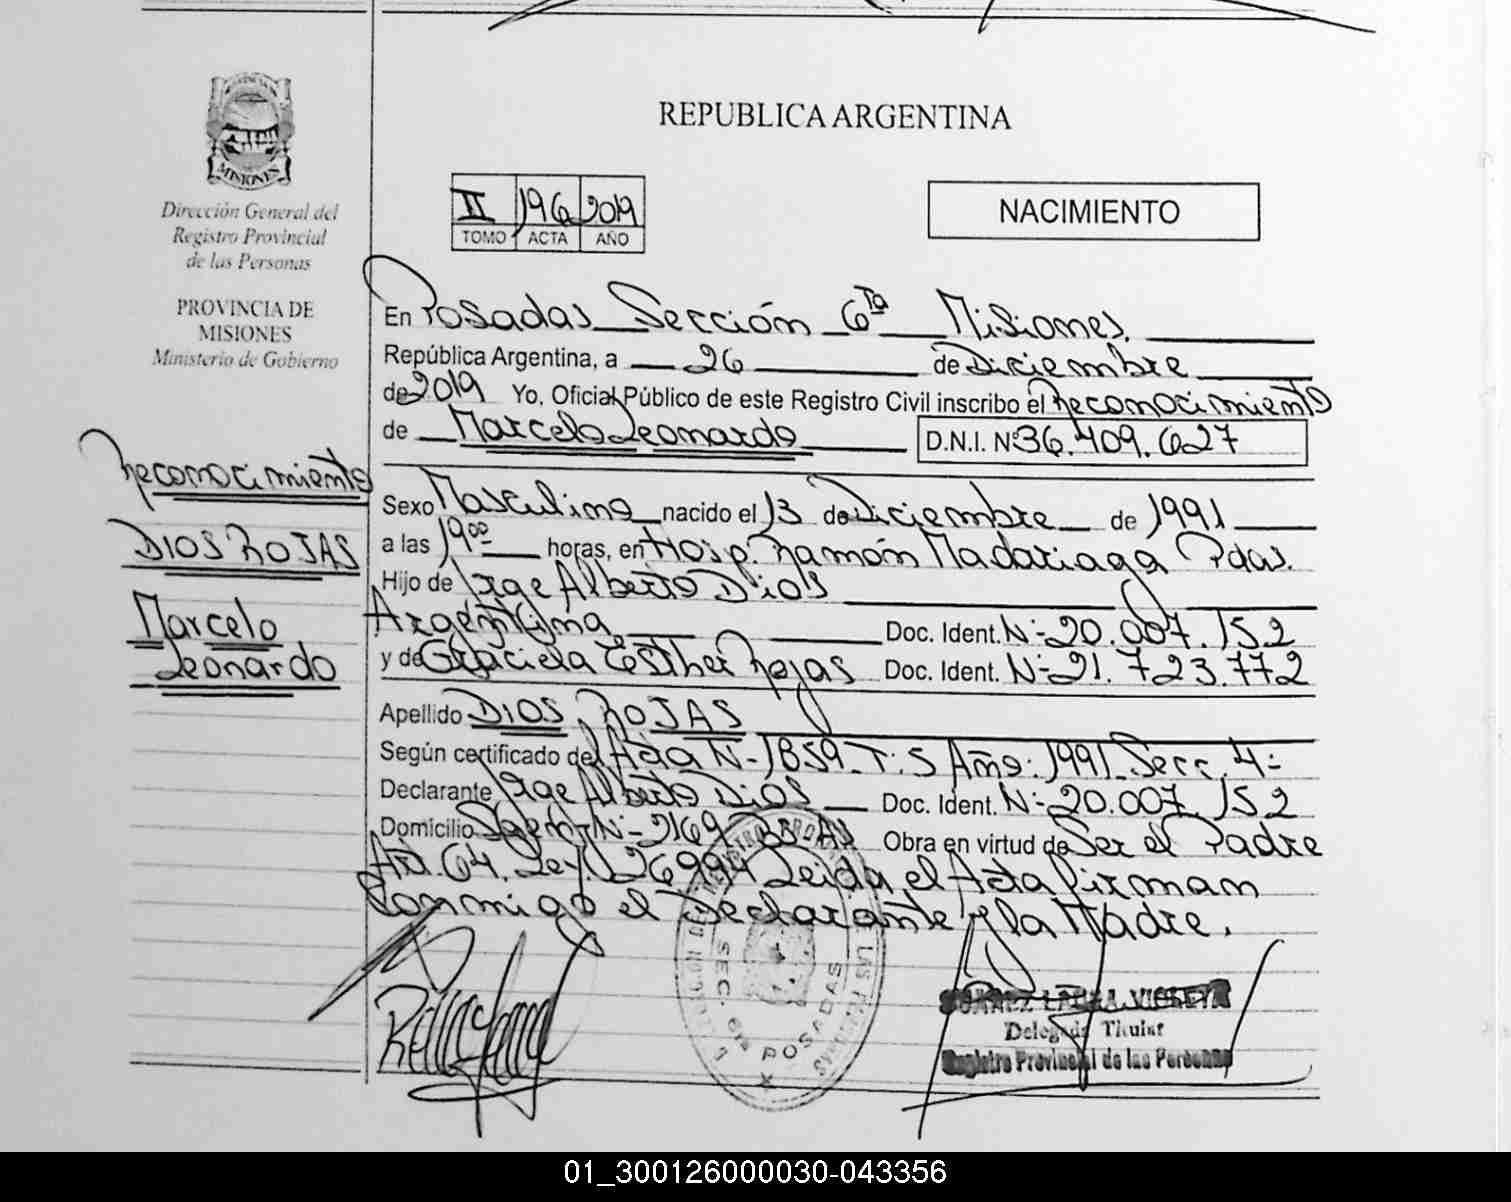 REPUBLICA ARGENTINA
MISIONES
Dirección General del
Registro Provincial
de las Personas
PROVINCIA DE
MISIONES
Ministerio de Gobierno
II 196 2019
TOMO ACTA AÑO
NACIMIENTO
En Posadas Sección 6ta Misiones.
República Argentina, a 26 de Diciembre
de 2019 Yo, Oficial Público de este Registro Civil inscribo el Reconocimiento
de Marcelo Leonardo D.N.I. Nº 36.409.627
Reconocimiento
DIOS ROJAS
Marcelo
Leonardo
Sexo Masculino nacido el 13 de Diciembre de 1991
a las 19:00 horas, en Hosp. Ramón Madariaga Pdas.
Hijo de Jorge Alberto Dios
Argentina Doc. Ident. Nº 20.007.152
y de Graciela Esther Rojas Doc. Ident. Nº 21.723.772
Apellido DIOS, ROJAS
Según certificado del Acta Nº 1859 T: 5 Año: 1991 Secc. 4º
Declarante Jorge Alberto Dios Doc. Ident. Nº 20.007.152
Domicilio Nº 2169 Bs As Obra en virtud de Ser el Padre
Art. 64. Ley. 26994 Leida el Acta firman
Conmigo el Declarante y la Madre.
SEC. 6ta POSADAS
SUAREZ LAURA VIOLETA
Delegada Titular
Registro Provincial de las Personas
01_300126000030-043356